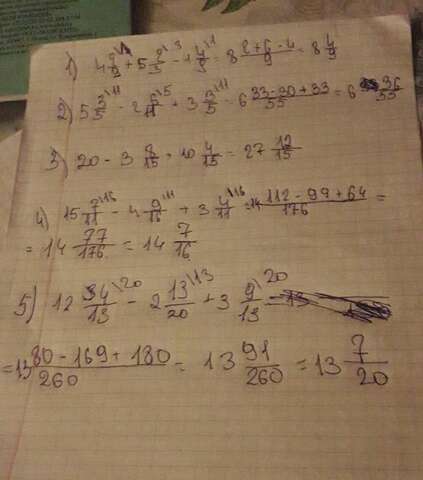 1) 4 2/9 \1 + 5 2/3 \3 - 1 4/9 \1 = 8 2+6-4/9 = 8 4/9
2) 5 3/5 \11 - 2 6/11 \5 + 3 3/5 \11 = 6 33-30+33/55 = 6 36/55
3) 20 - 3 8/15 + 10 4/15 = 27 12/15
4) 15 7/11 \16 - 4 9/16 \11 + 3 4/11 \16 = 14 112-99+64/176 =
= 14 77/176 = 14 7/16
5) 12 4/13 \20 - 2 13/20 \13 + 3 9/13 \20
= 13 80-169+180/260 = 13 91/260 = 13 7/20